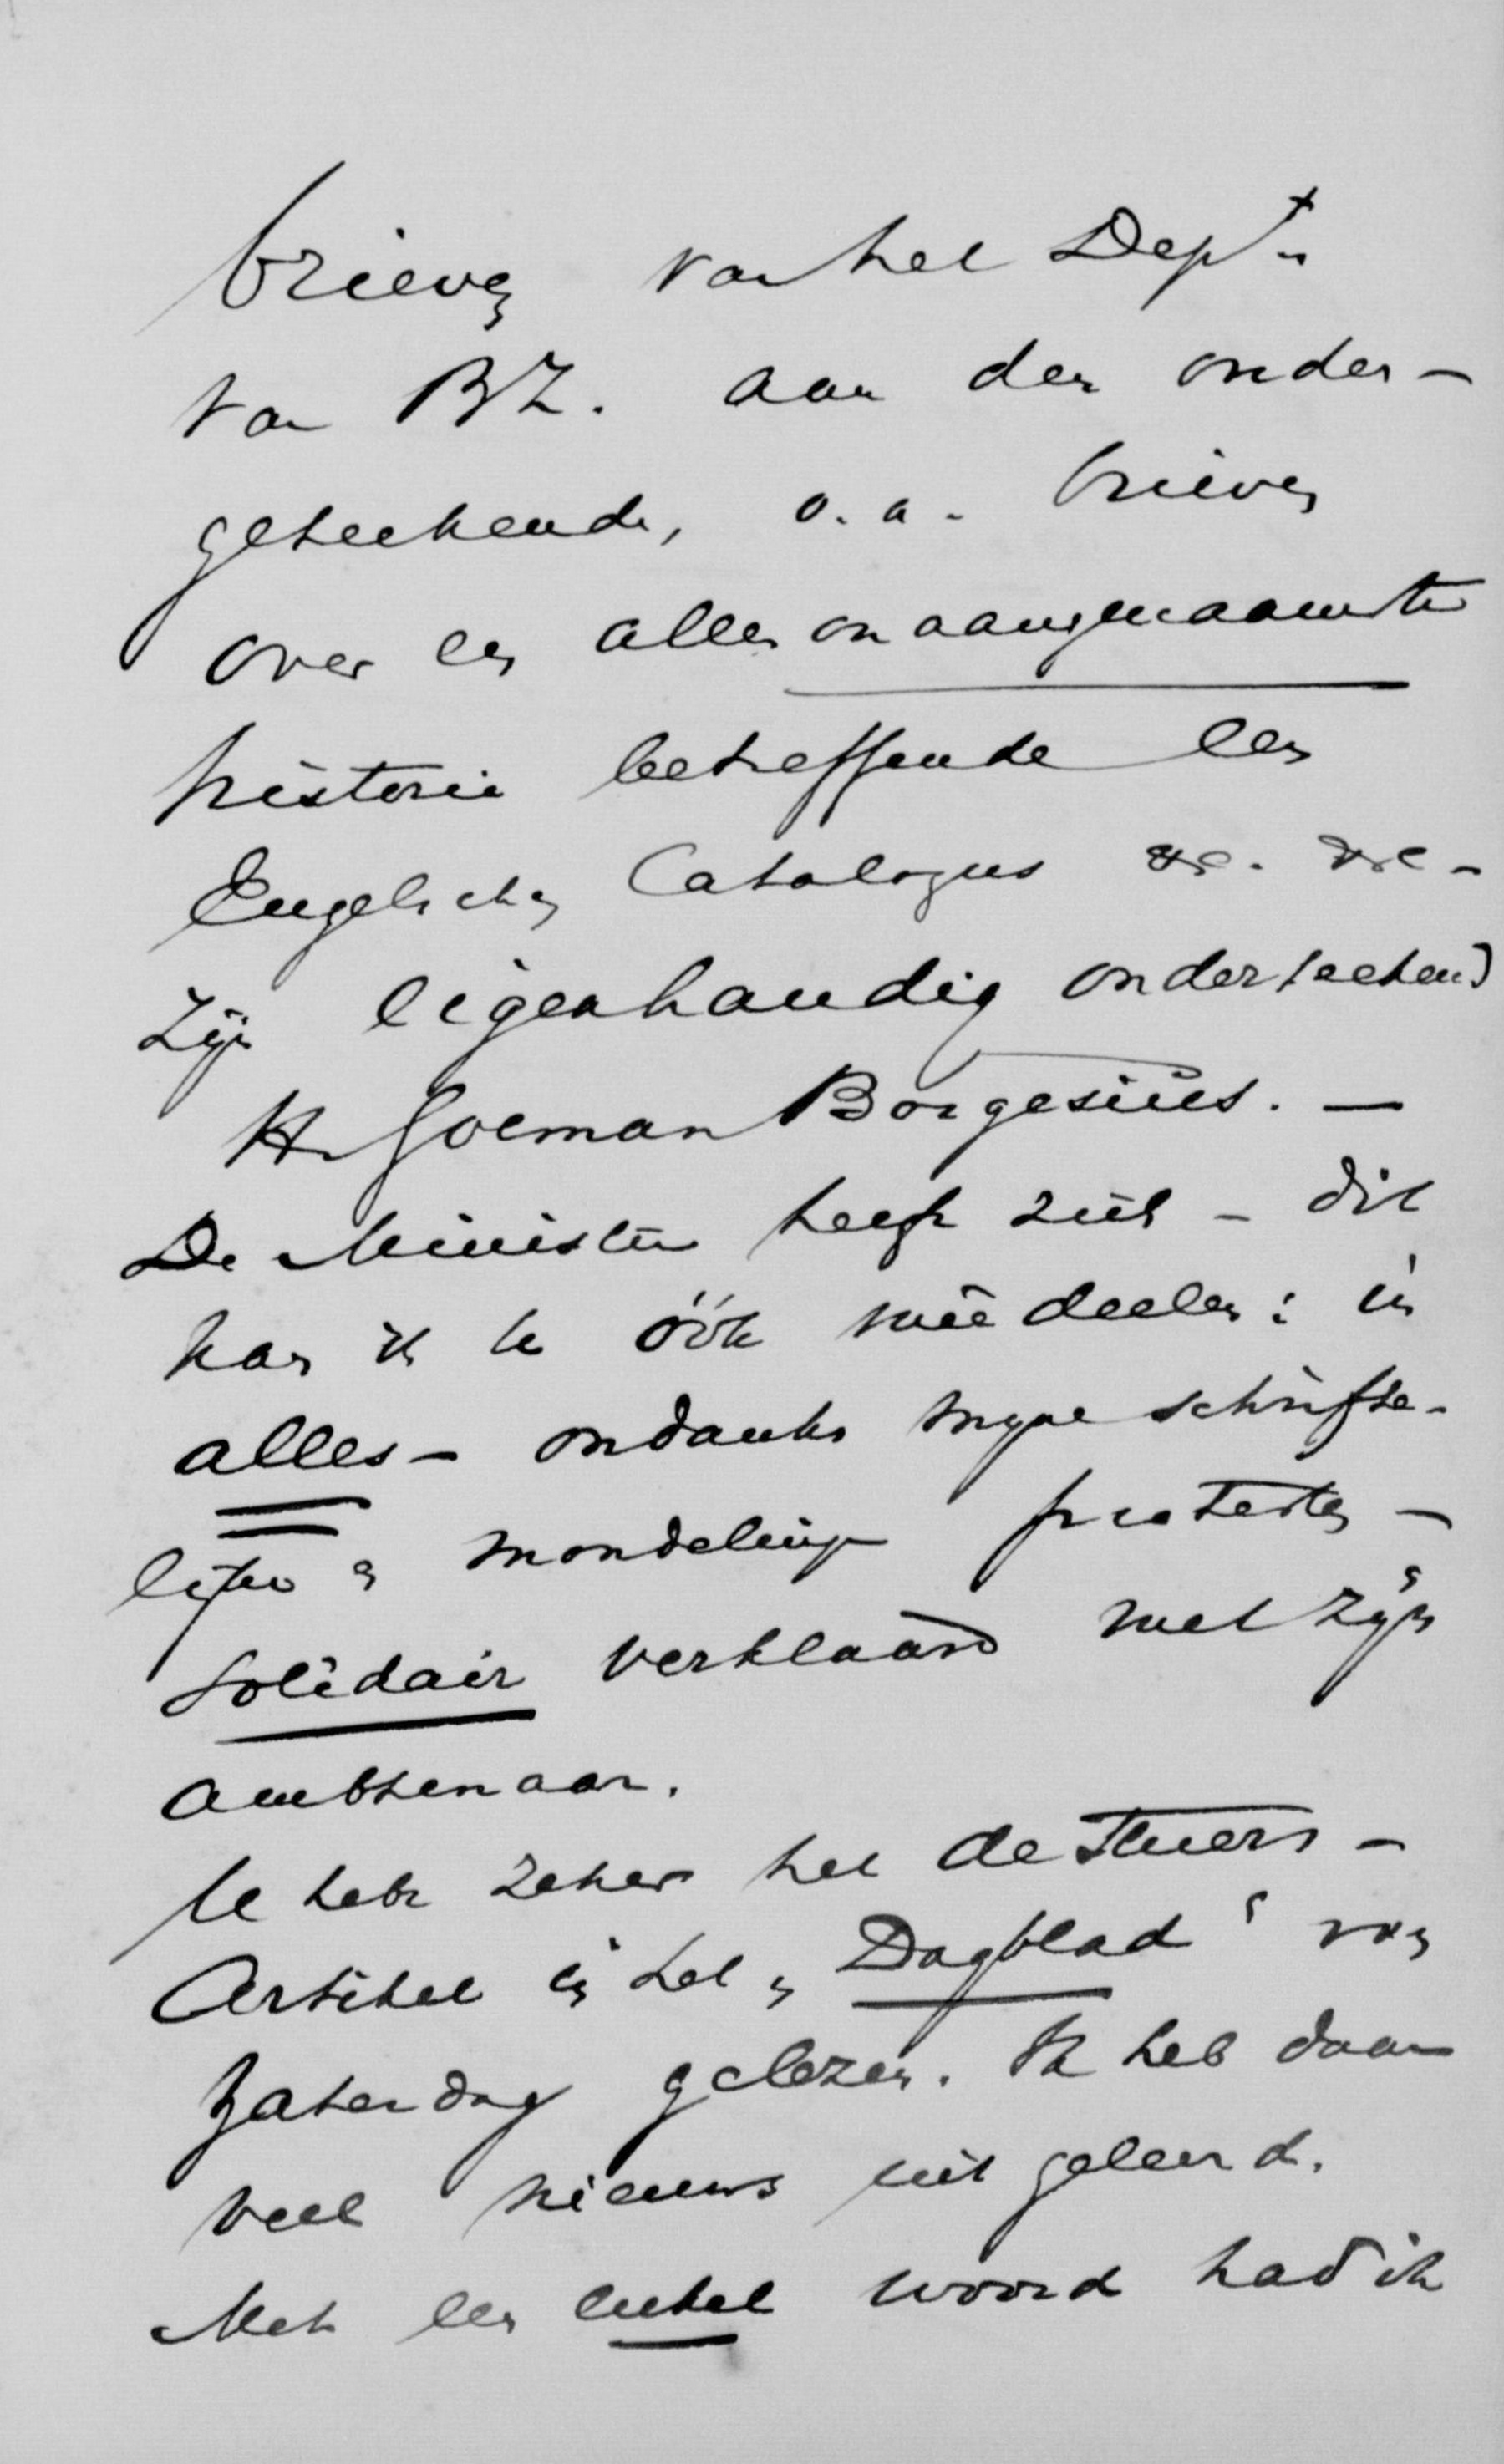 brieven van het Dept.
van BZ. aan den onder-
geteekende, o.a. brieven
over een alleronaangenaamste
historie betreffende een
Engelschen Catalogus &c. &c -
zijn eigenhandig onderteekend
H. Goeman Borgesius. —
De Minister heeft zich - dit
kan ik U óók meêdeelen: in
alles - ondanks myne schrifte-
lijke en mondelinge protesten -
solidair verklaard met zijn
ambtenaar.
U hebt zeker het de Stuers -
Artikel in het „Dagblad" van
Zaterdag gelezen. Ik heb daar
veel nieuws uit geleerd.
Met een enkel woord had ik